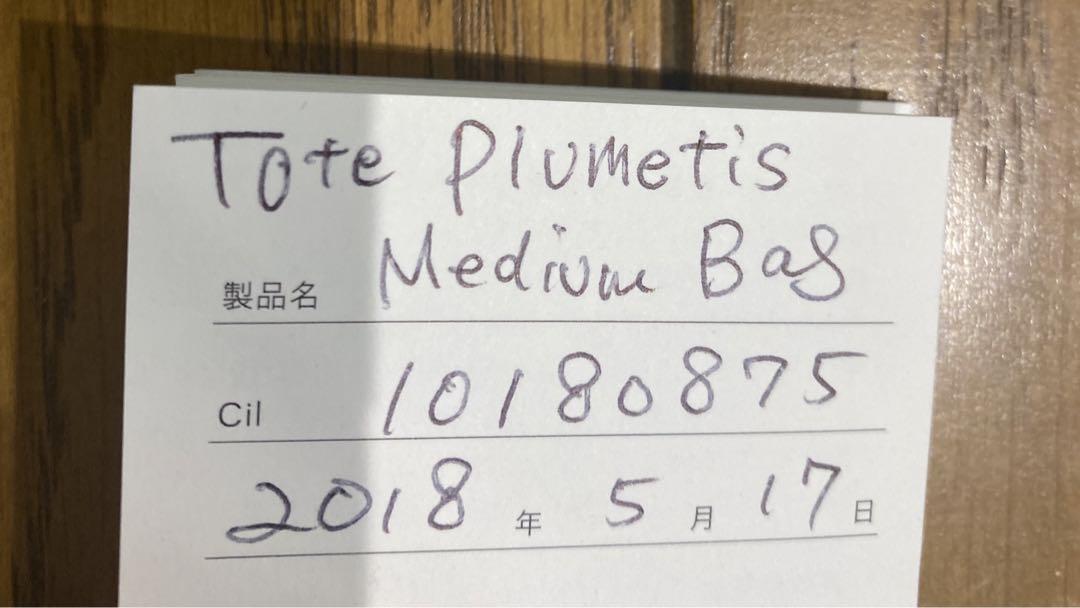 Tote Plumetis
製品名 Medium Bag
Cil 10180875
2018 年 5 月 17 日